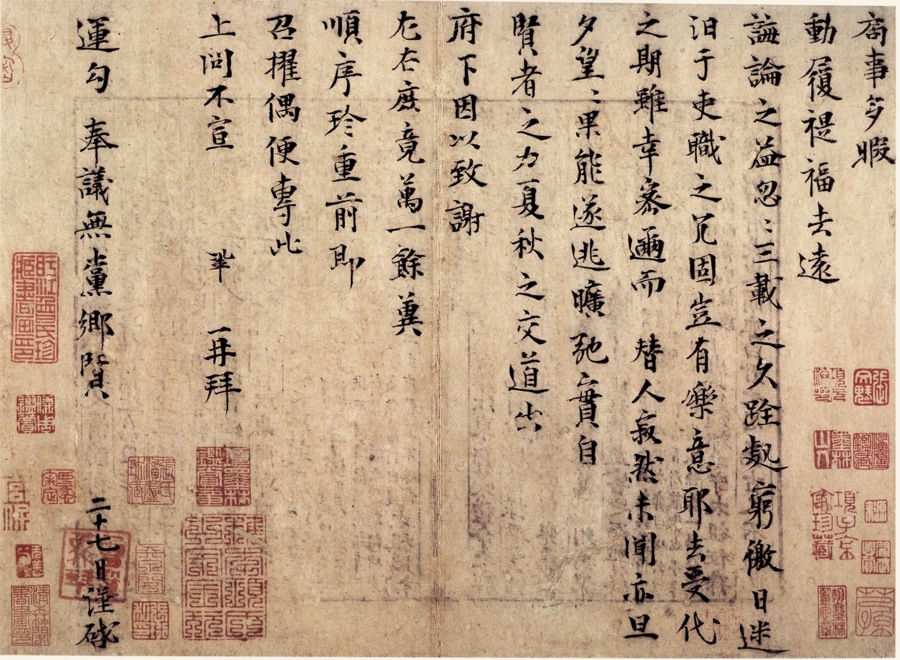 局事多暇
動履禔福去遠
誨論之益忽〻三載之久跧處窮徼日迷
汨于吏職之冗固豈有樂意耶去受代
之期雖幸密邇而 替人寂然未聞亦旦
夕望〻果能遂逃曠弛實自
賢者之力夏秋之交道出
府下因以致謝
左右庶竟萬一餘冀
順序珍重前即
召擢偶便專此
上問不宣 鞏 再拜
運勾 奉議無黨鄉賢 二十七日謹啓
項子京家珍藏